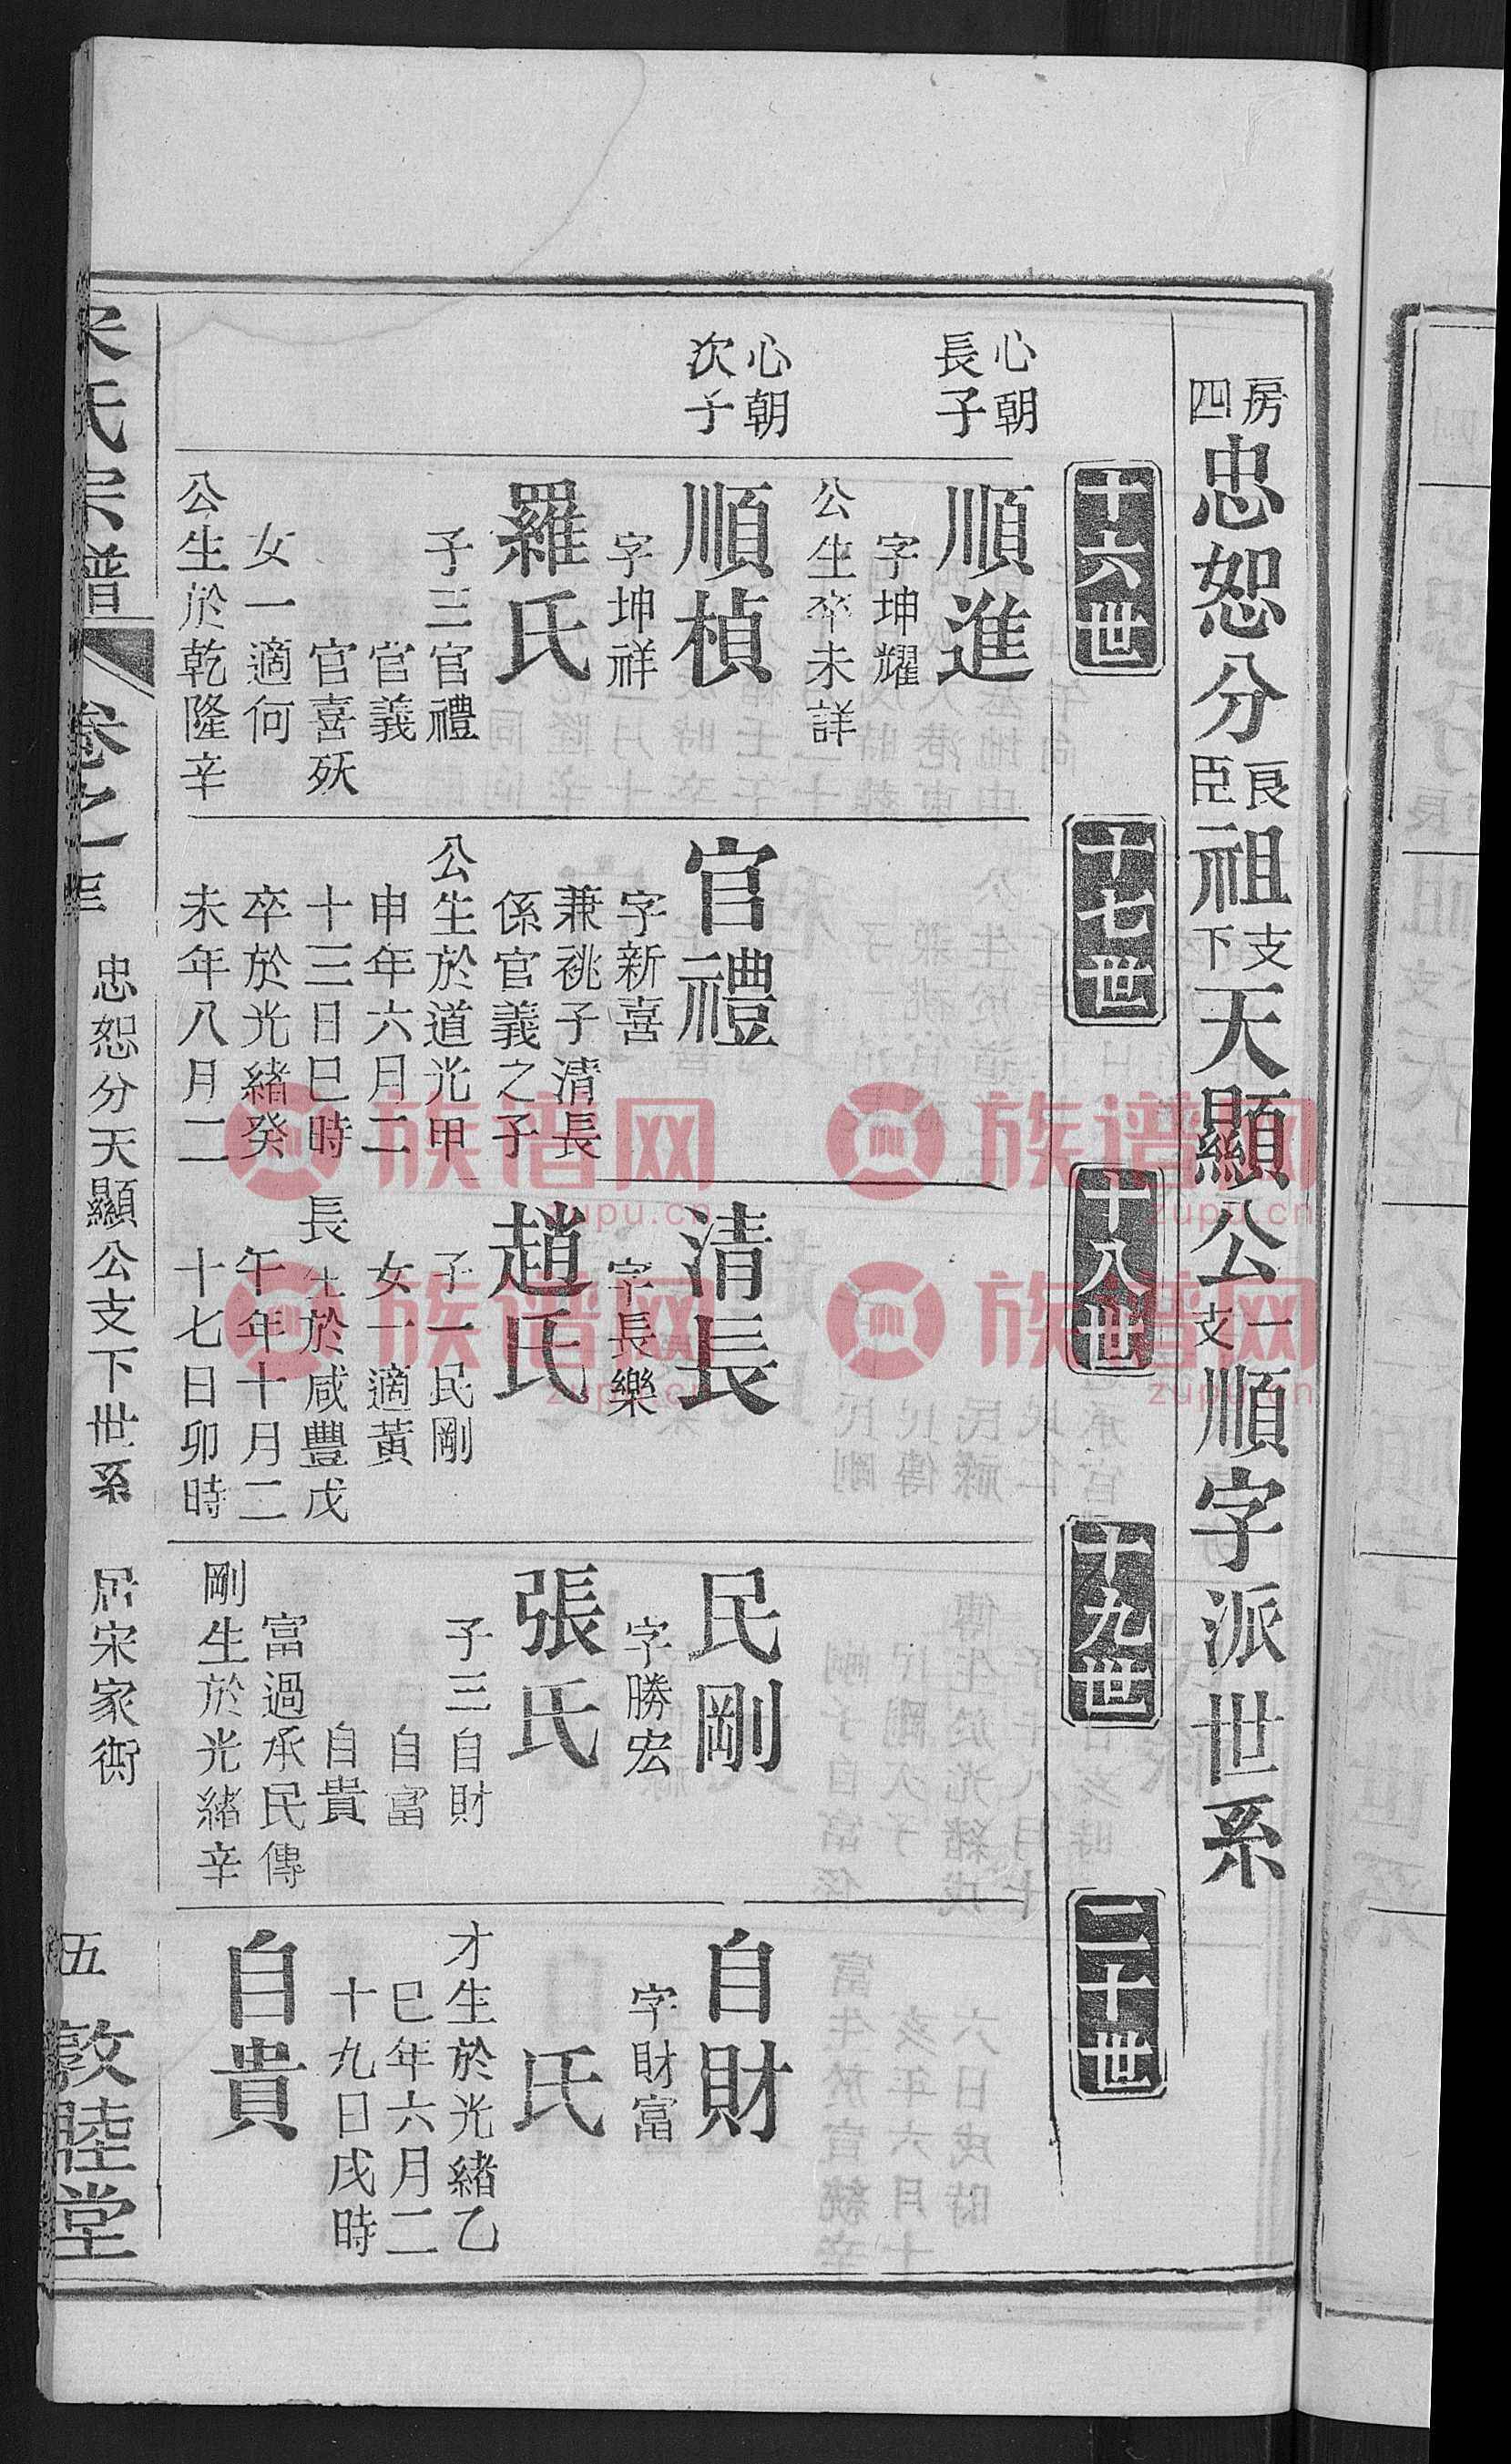 四房忠恕分良臣祖支下天顯公一支順字派世系
十六世
十七世
十八世
十九世
二十世
心朝
長子
順進
字坤耀
公生卒未詳
心朝
次子
順楨
字坤祥
羅氏
子三官禮
官義
官喜殀
女一適何
公生於乾隆辛
官禮
字新喜
兼祧子清長
係官義之子
公生於道光甲
申年六月二
十三日巳時
卒於光緒癸
未年八月二
清長
字長樂
趙氏
子一民剛
女一適黃
長生於咸豐戊
午年十月二
十七日卯時
民剛
字勝宏
張氏
子三自財
自富
自貴
富過承民傳
剛生於光緒辛
自財
字財富
氏
才生於光緒乙
巳年六月二
十九日戌時
自貴
宋氏宗譜
卷之
忠恕分天顯公支下世系
居宋家衖
五
敦睦堂
族谱网
zupu.cn
族谱网
zupu.cn
族谱网
zupu.cn
族谱网
zupu.cn